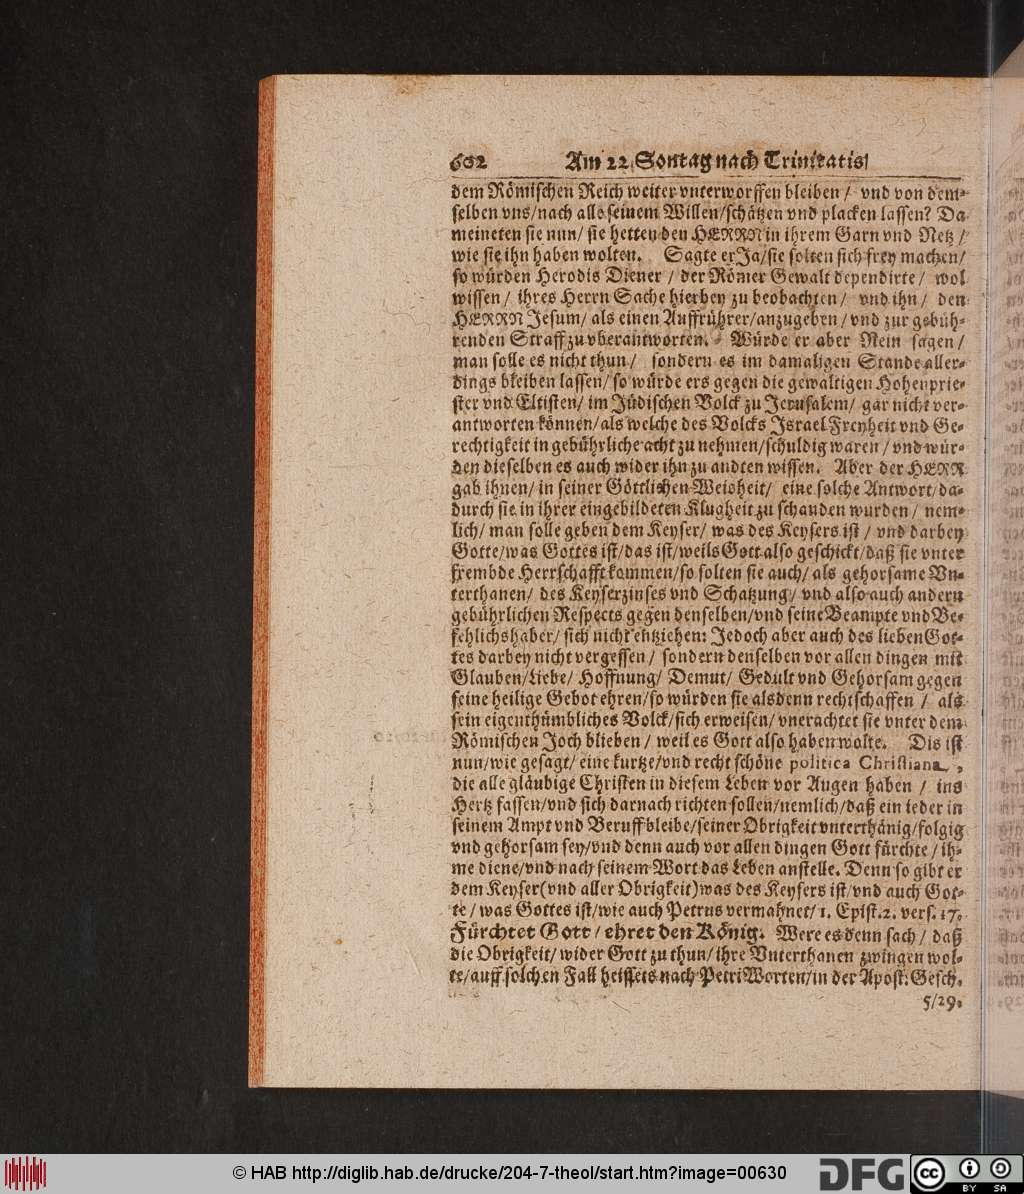 602 Am 22 Sontag nach Trinitatis/
dem Römischen Reich weiter vnterworffen bleiben / vnd von dem-
selben vns/nach alle seinem Willen/schätzen vnd placken lassen? Da
meineten sie nun/ sie hetten den HERRN in ihrem Garn vnd Netz /
wie sie ihn haben wolten. Sagte er Ja/sie solten sich frey machen/
so würden Herodis Diener / der Römer Gewalt dependirte / wol
wissen / ihres Herrn Sache hierbey zu beobachten / vnd ihn / den
HERRN Jesum/ als einen Auffrührer/anzugeben / vnd zur gebüh-
renden Straff zu vberantworten. Würde er aber Nein sagen /
man solle es nicht thun / sondern es im damaligen Stande aller-
dings bleiben lassen/ so würde ers gegen die gewaltigen Hohenprie-
ster vnd Eltisten/ im Jüdischen Volck zu Jerusalem/ gar nicht ver-
antworten können/als welche des Volcks Israel Freyheit vnd Ge-
rechtigkeit in gebührliche acht zu nehmen/schuldig waren / vnd wür-
den dieselben es auch wider ihn zu andten wissen. Aber der HERR
gab ihnen/ in seiner Göttlichen Weisheit/ eine solche Antwort/da-
durch sie in ihrer eingebildeten Klugheit zu schanden wurden / nem-
lich/ man solle geben dem Keyser/ was des Keysers ist / vnd darbey
Gotte/was Gottes ist/das ist/weils Gott also geschickt/daß sie vnter
frembde Herrschafft kommen/so solten sie auch/ als gehorsame Vn-
terthanen/ des Keyserzinses vnd Schatzung/ vnd also auch andern
gebührlichen Respects gegen denselben/vnd seine Beampte vnd Be-
fehlichshaber/ sich nicht entziehen: Jedoch aber auch des lieben Got-
tes darbey nicht vergessen / sondern denselben vor allen dingen mit
Glauben/Liebe/ Hoffnung/ Demut/ Gedult vnd Gehorsam gegen
seine heilige Gebot ehren/so würden sie alsdenn rechtschaffen / als
sein eigenthümbliches Volck/sich erweisen/ vnerachtet sie vnter dem
Römischen Joch blieben / weil es Gott also haben wolte. Dis ist
nun/wie gesagt/ eine kurtze/vnd recht schöne politica Christiana,
die alle gläubige Christen in diesem Leben vor Augen haben / ins
Hertz fassen/vnd sich darnach richten sollen/nemlich/daß ein ieder in
seinem Ampt vnd Beruff bleibe/seiner Obrigkeit vnterthänig/folgig
vnd gehorsam sey/vnd denn auch vor allen dingen Gott fürchte / ih-
me diene/vnd nach seinem Wort das Leben anstelle. Denn so gibt er
dem Keyser(vnd aller Obrigkeit)was des Keysers ist/vnd auch Got-
te / was Gottes ist/wie auch Petrus vermahnet/ 1. Epist. 2. vers. 17.
Fürchtet Gott / ehret den König. Were es denn sach / daß
die Obrigkeit/ wider Gott zu thun/ ihre Vnterthanen zwingen wol-
te/auff solchen Fall heissets nach Petri Worten/in der Apost. Gesch.
5/29.
© HAB http://diglib.hab.de/drucke/204-7-theol/start.htm?image=00630
DFG
cc BY SA